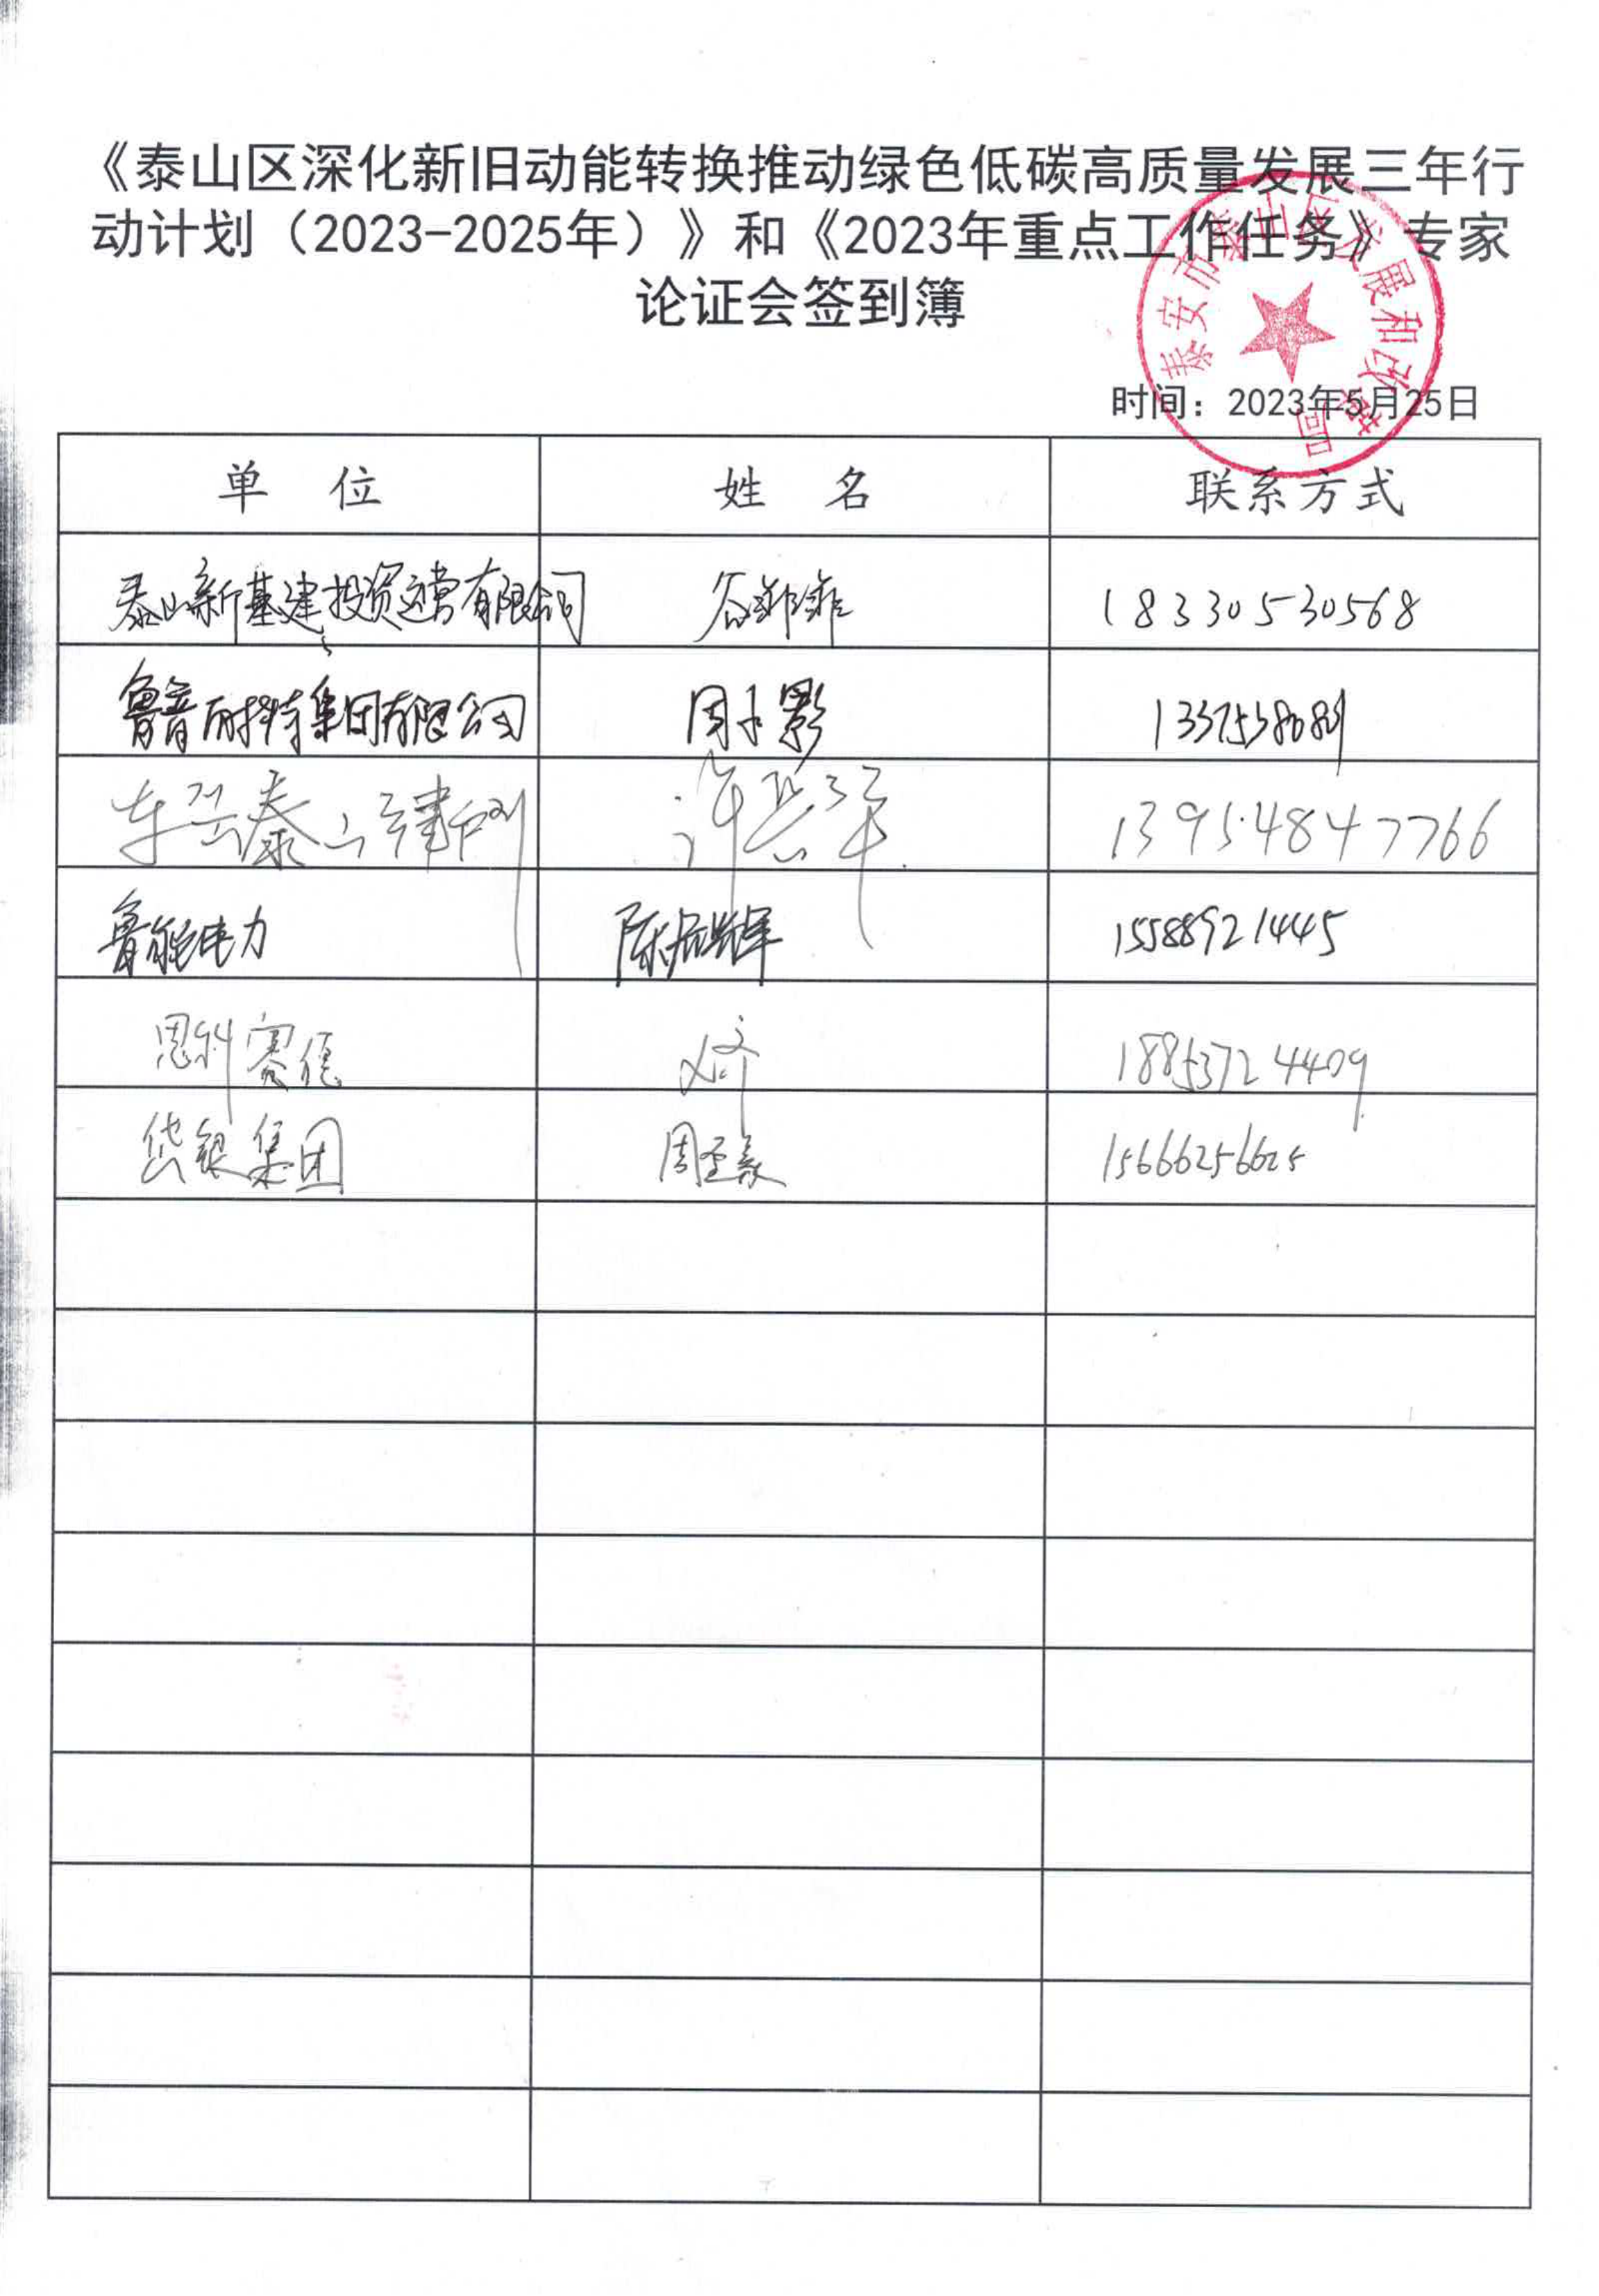 《泰山区深化新旧动能转换推动绿色低碳高质量发展三年行
动计划（2023-2025年）》和《2023年重点工作任务》专家
论证会签到簿
泰安市泰山区发展和改革局
时间：2023年5月25日
单 位 姓 名 联系方式
泰山新基建投资运营有限公司 18330530568
鲁普耐特集团有限公司 周 影
泰山 13954847766
鲁能电力 陈 辉 15588921445
思科赛德 18853724409
岱银集团 周 15666256625